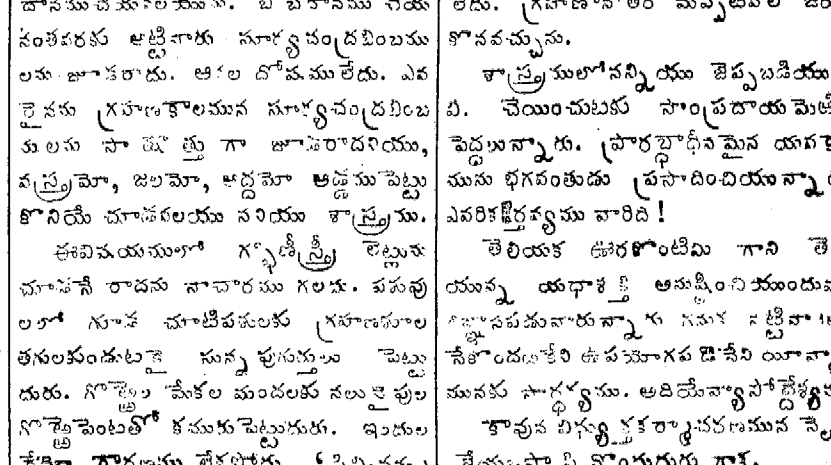 నంతవరకు అట్టివారు సూర్యచంద్రబింబము
లను జూడరాదు. ఆకల దోషములేదు. ఎవ
రైనను గ్రహణకాలమున సూర్యచంద్రబింబ
ములను సాక్షాత్తు గా జూడరాదనియు,
వస్త్రమో, జలమో, అద్దమో అడ్డముపెట్టు
కొనియే చూడవలయు ననియు శాస్త్రము.
ఈవిషయములో గర్భిణీస్త్రీ లెట్లును
చూడనే రాదను నాచారము గలదు. పశువు
లలో గూడ చూటిపశులకు గ్రహణమూల
తగులకుండుటకై సున్నపుగుర్తులు పెట్టు
దురు. గొఱ్ఱెల మేకల మందలకు నలువైపుల
గొఱ్ఱెపెంటతో కమురుపెట్టుదురు. ఇందుల
కొనవచ్చును.
శాస్త్రములోనన్నియు జెప్పబడియు
వి. చేయించుటకు సాంప్రదాయమెఱి
పెద్దలున్నారు. ప్రారబ్ధాధీనమైన యవకా
మును భగవంతుడు ప్రసాదించియున్నా
ఎవరికర్తవ్యము వారిది!
తెలియక ఊరకొంటిమి గాని తె
యున్న యథాశక్తి అనుష్ఠించియుందుమ
జిజ్ఞాసపడువారున్నారు గనుక నట్టివా
నేకొందఱికేని ఉపయోగపడినేని యీవ్యా
మునకు సార్థక్యము. అదియేవ్యాసోద్దేశ్యమ
కావున విధ్యుక్తకర్మాచరణమున నె